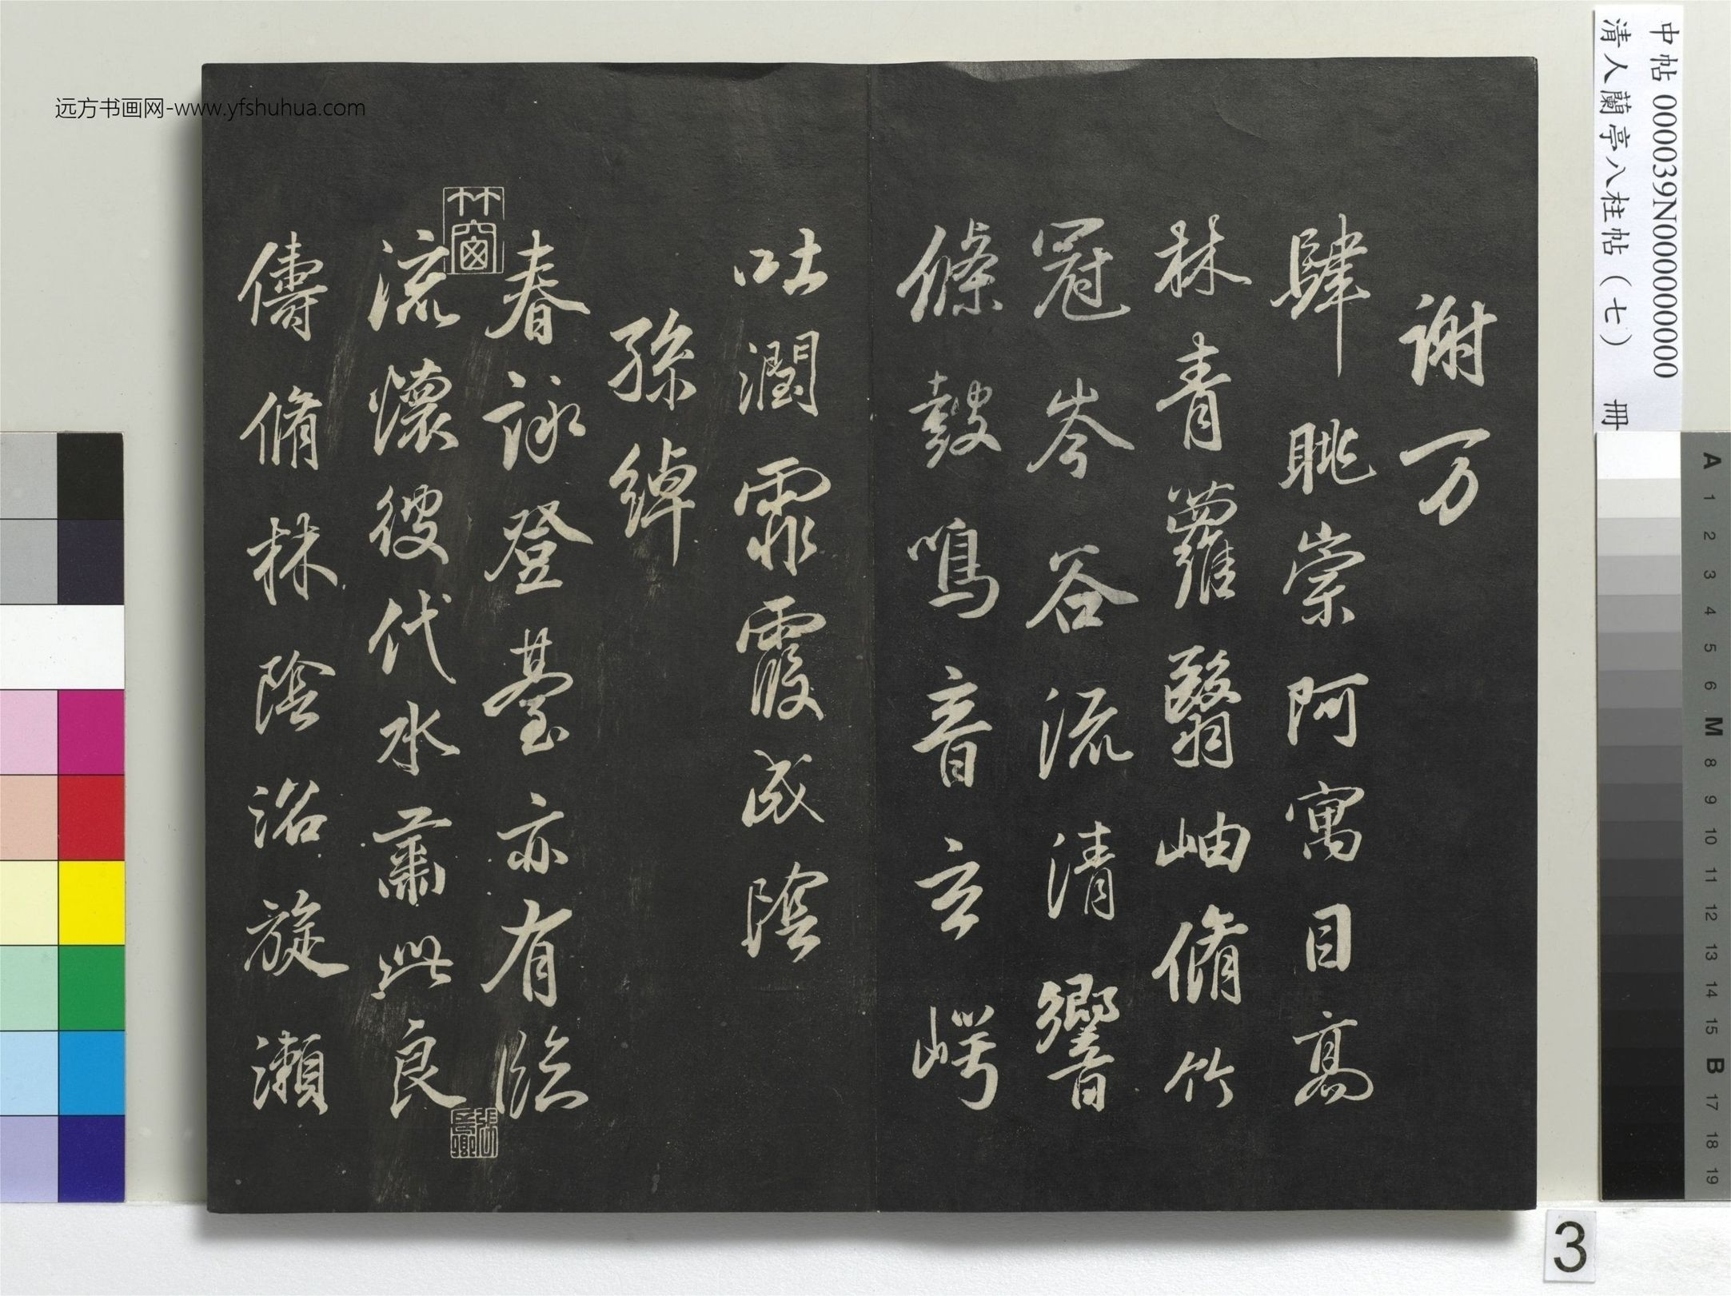 谢万
肆眺崇阿寓目高
林青蘿翳岫脩竹
冠岑谷流清響
條鼓鳴音玄崿
吐潤霏霧成陰
孫綽
春詠登臺亦有臨
流懷彼伐木肅此良
儔脩林陰沼旋瀨
竹窗
远方书画网-www.yfshuhua.com
中帖 000039N000000000
清人蘭亭八柱帖(七) 冊
A 1 2 3 4 5 6 M 8 9 10 11 12 13 14 15 B 17 18 19
3